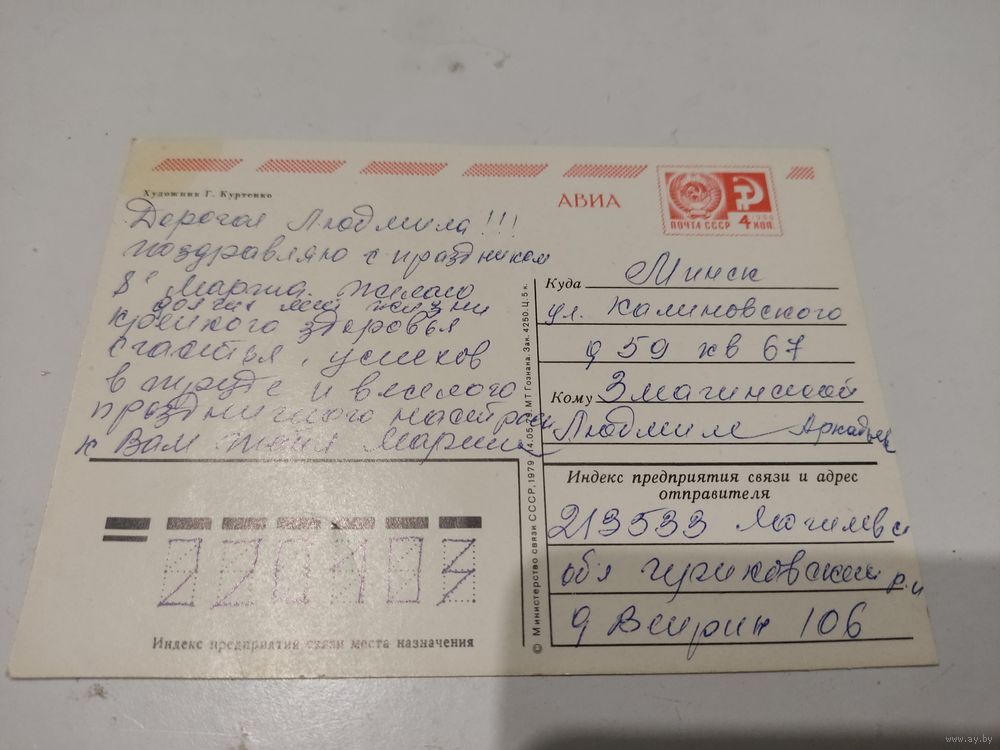 Художник Г. Куртенко
АВИА
ПОЧТА СССР
1966
4 КОП.
Дорогая Людмила!!!
поздравляю с праздником
8е Марта. желаю
долгих лет жизни
крепкого здоровья
счастья, успехов
в труде и веселого
праздничного настроен
к Вам
Куда Минск
ул. Калиновского
д 59 кв 67
Кому Змагинской
Людмиле Аркадьев
Индекс предприятия связи и адрес
отправителя
213533 Могилевс
обл р.н
д Веприн 106
© Министерство связи СССР, 1979 14.05.79. МТ Гознака. Зак. 4250. Ц. 5 к.
22010
Индекс предприятия связи места назначения
www.ay.by